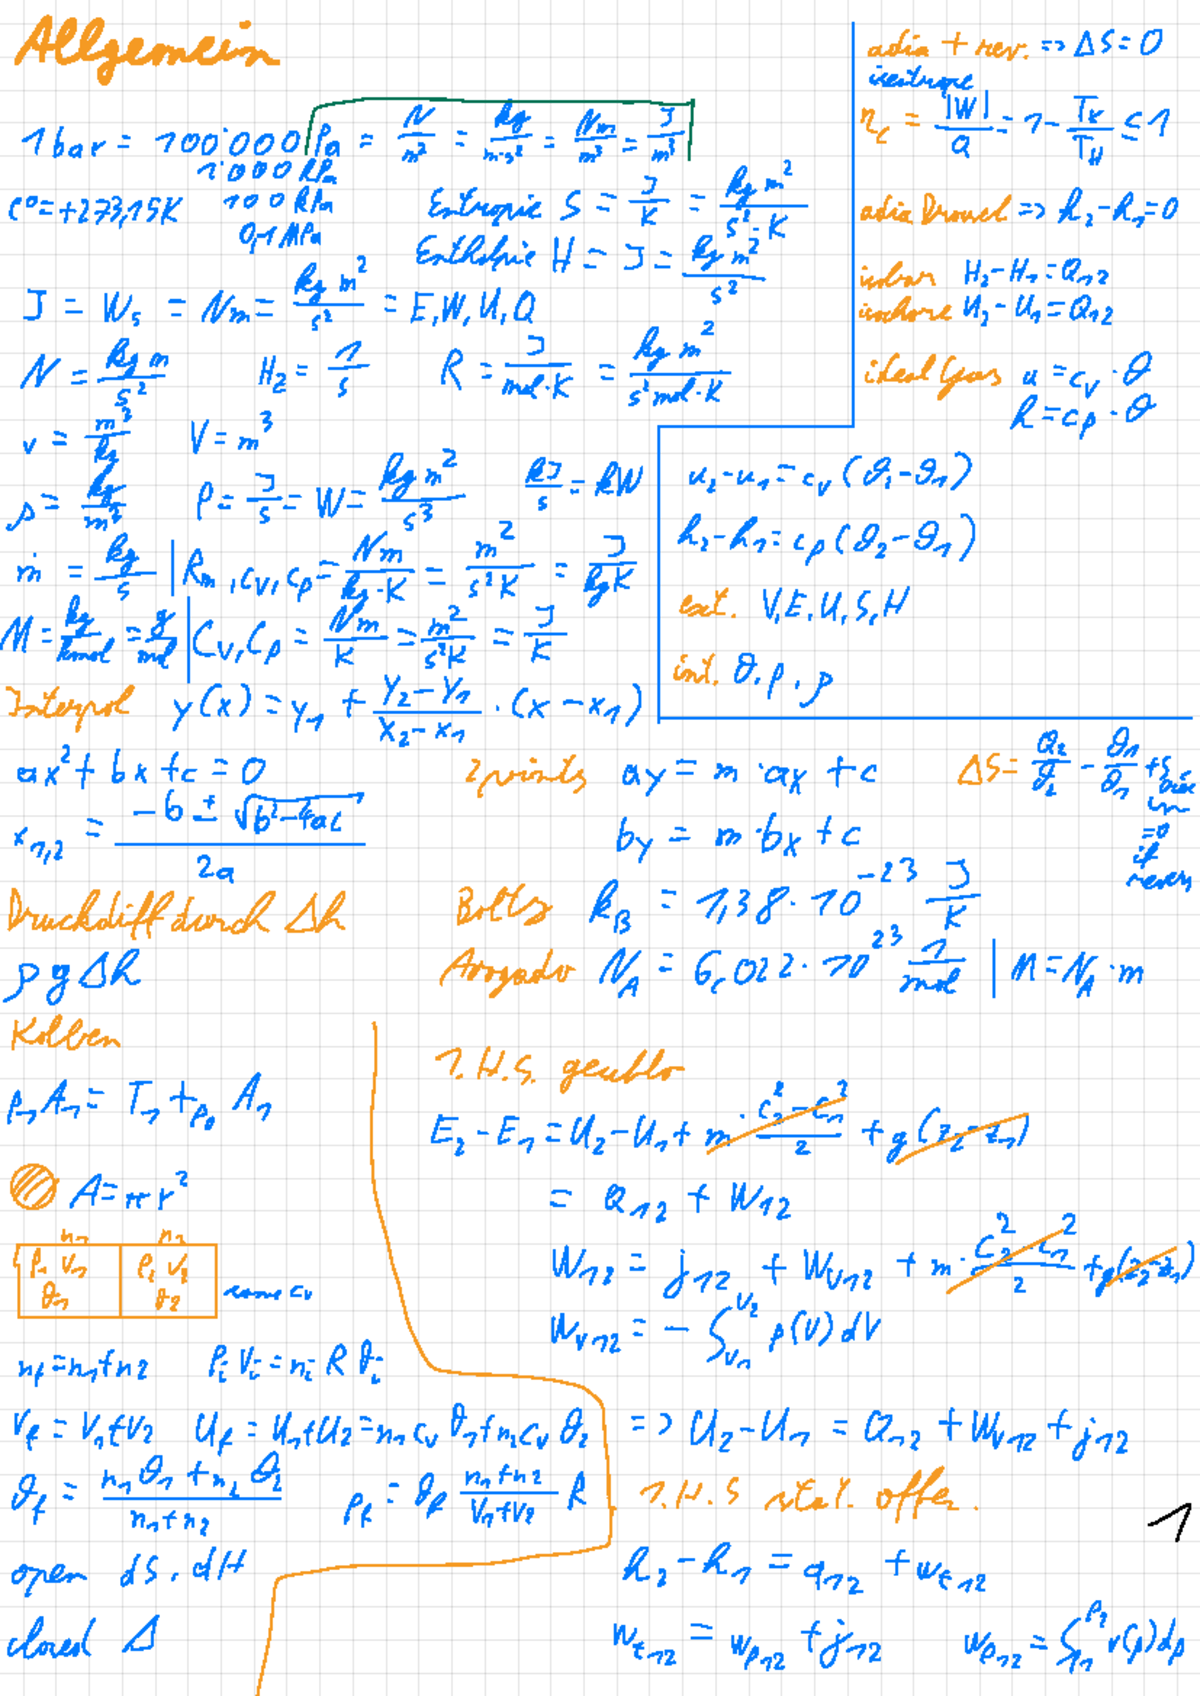 Allgemein
1 bar = 100'000 Pa = N/m² = kg/m·s² = Nm/m³ = J/m³
1'000 hPa
100 kPa
0,1 MPa
C° = +273,15K
Entropie S = J/K = kg m²/s²·K
Enthalpie H = J = kg m²/s²
J = Ws = Nm = kg m²/s² = E, W, U, Q
N = kg m/s² Hz = 1/s R = J/mol·K = kg m²/s² mol·K
v = m³/kg V = m³
ρ = kg/m³ P = J/s = W = kg m²/s³ kJ/s = kW
ṁ = kg/s | Rm, cv, cp = Nm/kg·K = m²/s²K = J/kgK
M = kg/kmol = g/mol | Cv, Cp = Nm/K = m²/s²K = J/K
Interpol y(x) = y₁ + (y₂-y₁)/(x₂-x₁) · (x-x₁)
adia + rev. => ΔS = 0
isentrope
ηc = |W|/Q = 1 - TK/TH ≤ 1
adia Drossel => h₂-h₁=0
isobar H₂-H₁=Q₁₂
isochore U₂-U₁=Q₁₂
ideal Gas u = cv · ϑ
h = cp · ϑ
u₂-u₁ = cv (ϑ₂-ϑ₁)
h₂-h₁ = cp (ϑ₂-ϑ₁)
ext. V, E, U, S, H
int. ϑ, p, ρ
ax² + bx + c = 0
x₁,₂ = (-b ± √(b²-4ac))/2a
2 points ay = m·ax + c
by = m·bx + c
ΔS = Q₂/ϑ₂ - ϑ₁/ϑ₁ + S
=0
if
revers
Druckdiff durch Δh
ρ g Δh
Boltz kB = 1,38·10⁻²³ J/K
Avogadro NA = 6,022·10²³ 1/mol | M = NA·m
Kolben
p₁A₁ = T₁ + p₀ A₁
A = π r²
n₁ n₂
P₁ V₁ P₂ V₂
ϑ₁ ϑ₂
same cv
nf = n₁+n₂ Pi Vi = ni R ϑi
Vf = V₁+V₂ Uf = U₁+U₂ = n₁ cv ϑ₁ + n₂ cv ϑ₂
ϑf = (n₁ϑ₁ + n₂ϑ₂)/(n₁+n₂) pf = ϑf (n₁+n₂)/(V₁+V₂) R
open dS, dH
closed Δ
1. H.S. geschlo
E₂-E₁ = U₂-U₁ + m·(c₂²-c₁²)/2 + g(z₂-z₁)
= Q₁₂ + W₁₂
W₁₂ = j₁₂ + Wv₁₂ + m·(c₂²-c₁²)/2 + g(z₂-z₁)
Wv₁₂ = -∫V₁^V₂ p(V) dV
=> U₂-U₁ = Q₁₂ + Wv₁₂ + j₁₂
1. H.S stat. offen.
h₂-h₁ = q₁₂ + wt₁₂
wt₁₂ = wp₁₂ + j₁₂ wp₁₂ = ∫p₁^p₂ v(p)dp
1